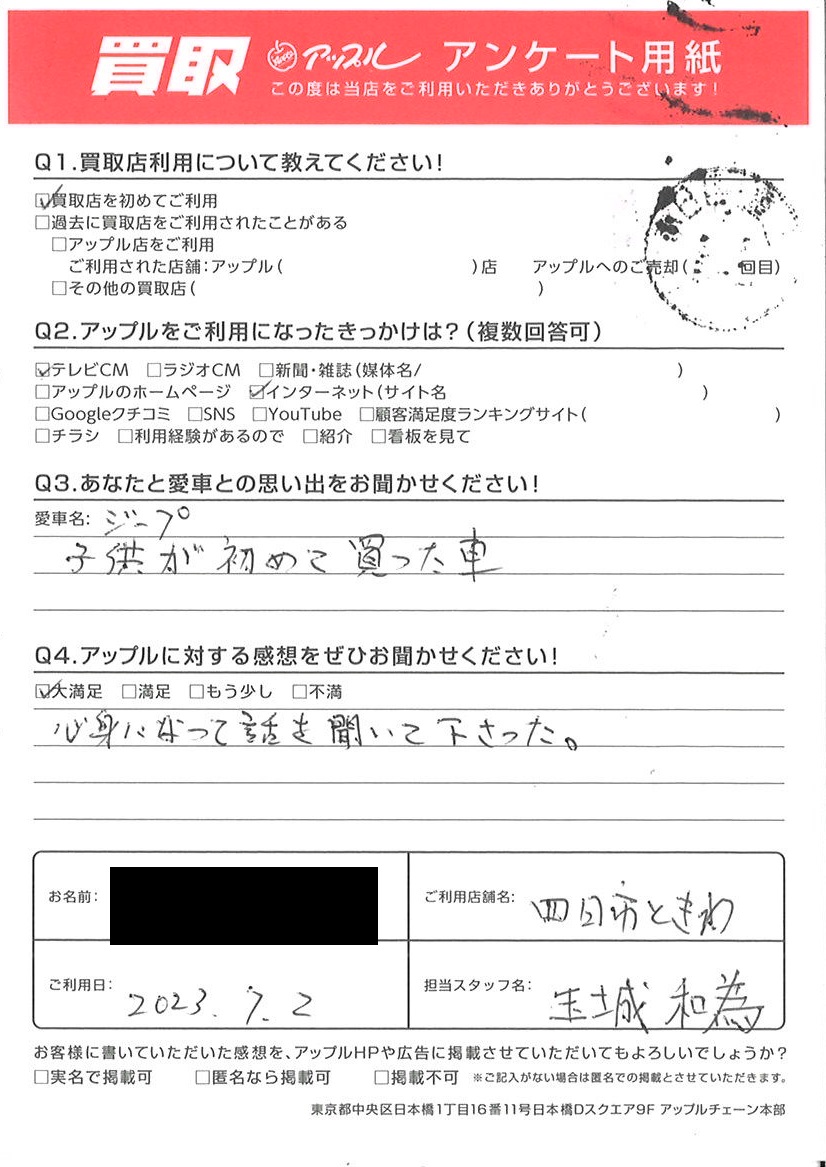 買取 アップル アンケート用紙
この度は当店をご利用いただきありがとうございます！
Q1.買取店利用について教えてください！
☑買取店を初めてご利用
□過去に買取店をご利用されたことがある
□アップル店をご利用
ご利用された店舗：アップル（ ）店 アップルへのご売却（ 回目）
□その他の買取店（ ）
Q2.アップルをご利用になったきっかけは？（複数回答可）
☑テレビCM □ラジオCM □新聞・雑誌（媒体名/ ）
□アップルのホームページ ☑インターネット（サイト名 ）
□Googleクチコミ □SNS □YouTube □顧客満足度ランキングサイト（ ）
□チラシ □利用経験があるので □紹介 □看板を見て
Q3.あなたと愛車との思い出をお聞かせください！
愛車名： ジープ
子供が初めて買った車
Q4.アップルに対する感想をぜひお聞かせください！
☑大満足 □満足 □もう少し □不満
心身になって話を聞いて下さった。
お名前：
ご利用店舗名： 四日市ときわ
ご利用日： 2023.7.2
担当スタッフ名： 玉城 和為
お客様に書いていただいた感想を、アップルHPや広告に掲載させていただいてもよろしいでしょうか？
□実名で掲載可 □匿名なら掲載可 □掲載不可 ※ご記入がない場合は匿名での掲載とさせていただきます。
東京都中央区日本橋1丁目16番11号日本橋Dスクエア9F アップルチェーン本部